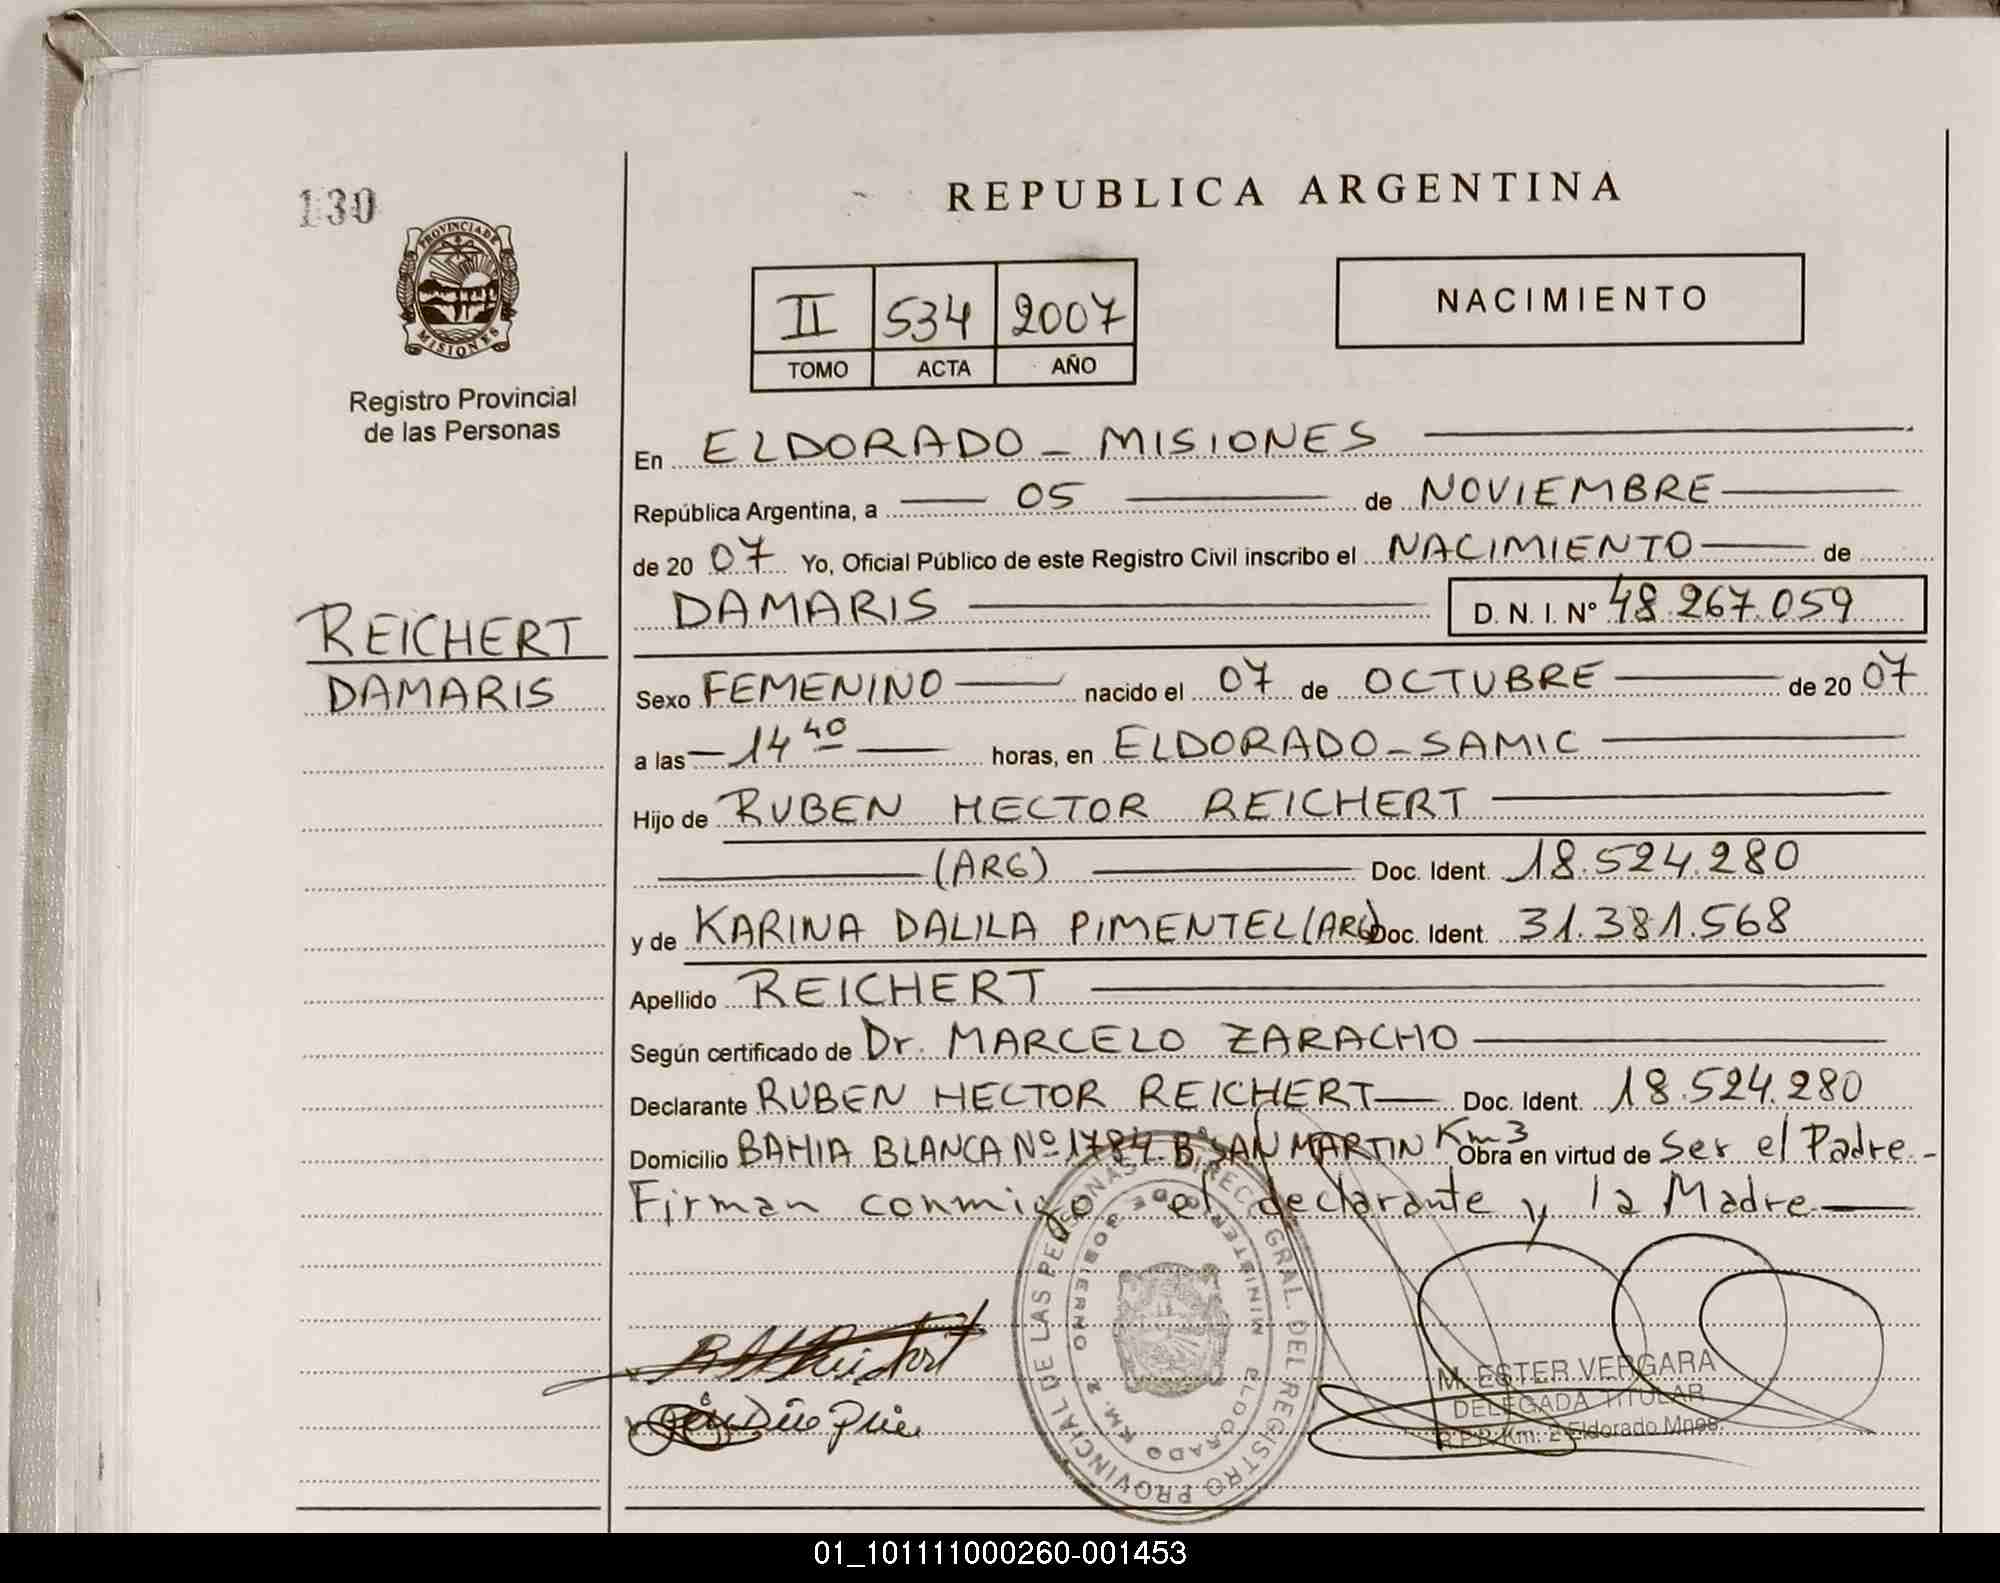 130
REPUBLICA ARGENTINA
PROVINCIA DE
MISIONES
Registro Provincial
de las Personas
II 534 2007
TOMO ACTA AÑO
NACIMIENTO
En ELDORADO - MISIONES
República Argentina, a 05 de NOVIEMBRE
de 20 07 Yo, Oficial Público de este Registro Civil inscribo el NACIMIENTO de
DAMARIS D. N. I. Nº 48.267.059
REICHERT
DAMARIS
Sexo FEMENINO nacido el 07 de OCTUBRE de 20 07
a las 14 40 horas, en ELDORADO - SAMIC
Hijo de RUBEN HECTOR REICHERT
(ARG) Doc. Ident. 18.524.280
y de KARINA DALILA PIMENTEL (ARG) Doc. Ident. 31.381.568
Apellido REICHERT
Según certificado de Dr. MARCELO ZARACHO
Declarante RUBEN HECTOR REICHERT Doc. Ident. 18.524.280
Domicilio BAHIA BLANCA Nº 1784 Bº SAN MARTIN Km 3 Obra en virtud de Ser el Padre -
Firman conmigo el declarante y la Madre
DIREC. GRAL. DEL REGISTRO PROVINCIAL DE LAS PERSONAS
MINISTERIO DE GOBIERNO
ELDORADO KM. 2
M. ESTER VERGARA
DELEGADA TITULAR
R.P.P. Km. 2 Eldorado Mnes.
01_101111000260-001453